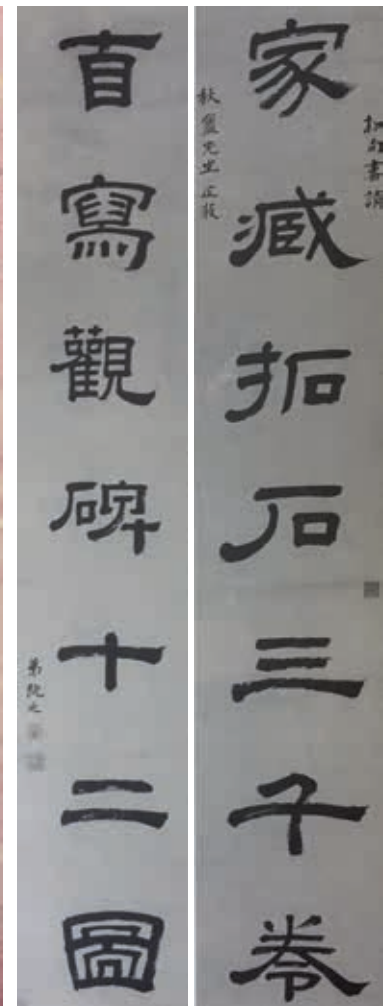 家臧拓石三千卷
秋盦先生正
自寫觀碑十二圖
弟